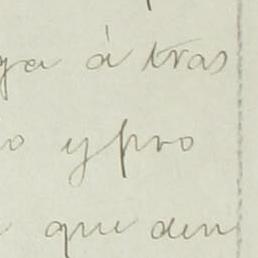 ga á tras
o y pro
que den